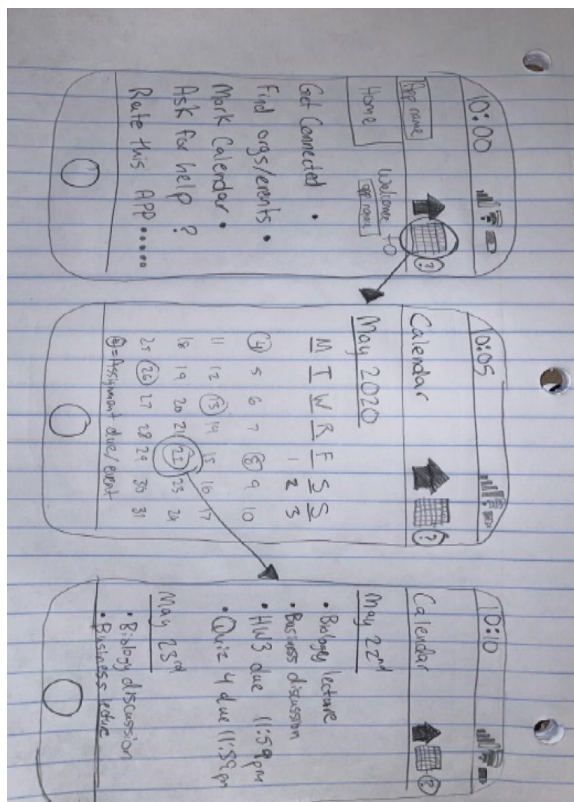 10:00
App name
Home
Welcome to
app name
?
Get Connected •
Find orgs/events •
Mark Calendar •
Ask for help ?
Rate this APP •••••
10:05
Calendar
?
May 2020
M T W R F S S
1 2 3
4 5 6 7 8 9 10
11 12 13 14 15 16 17
18 19 20 21 22 23 24
25 26 27 28 29 30 31
= Assignment due/event
10:10
Calendar
?
May 22nd
• Biology lecture
• Business discussion
• HW3 due 11:59pm
• Quiz 4 due 11:59pm
May 23rd
• Biology discussion
• Business lecture